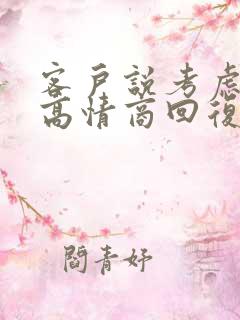 客戶說考慮
高情商回復
閻青妤